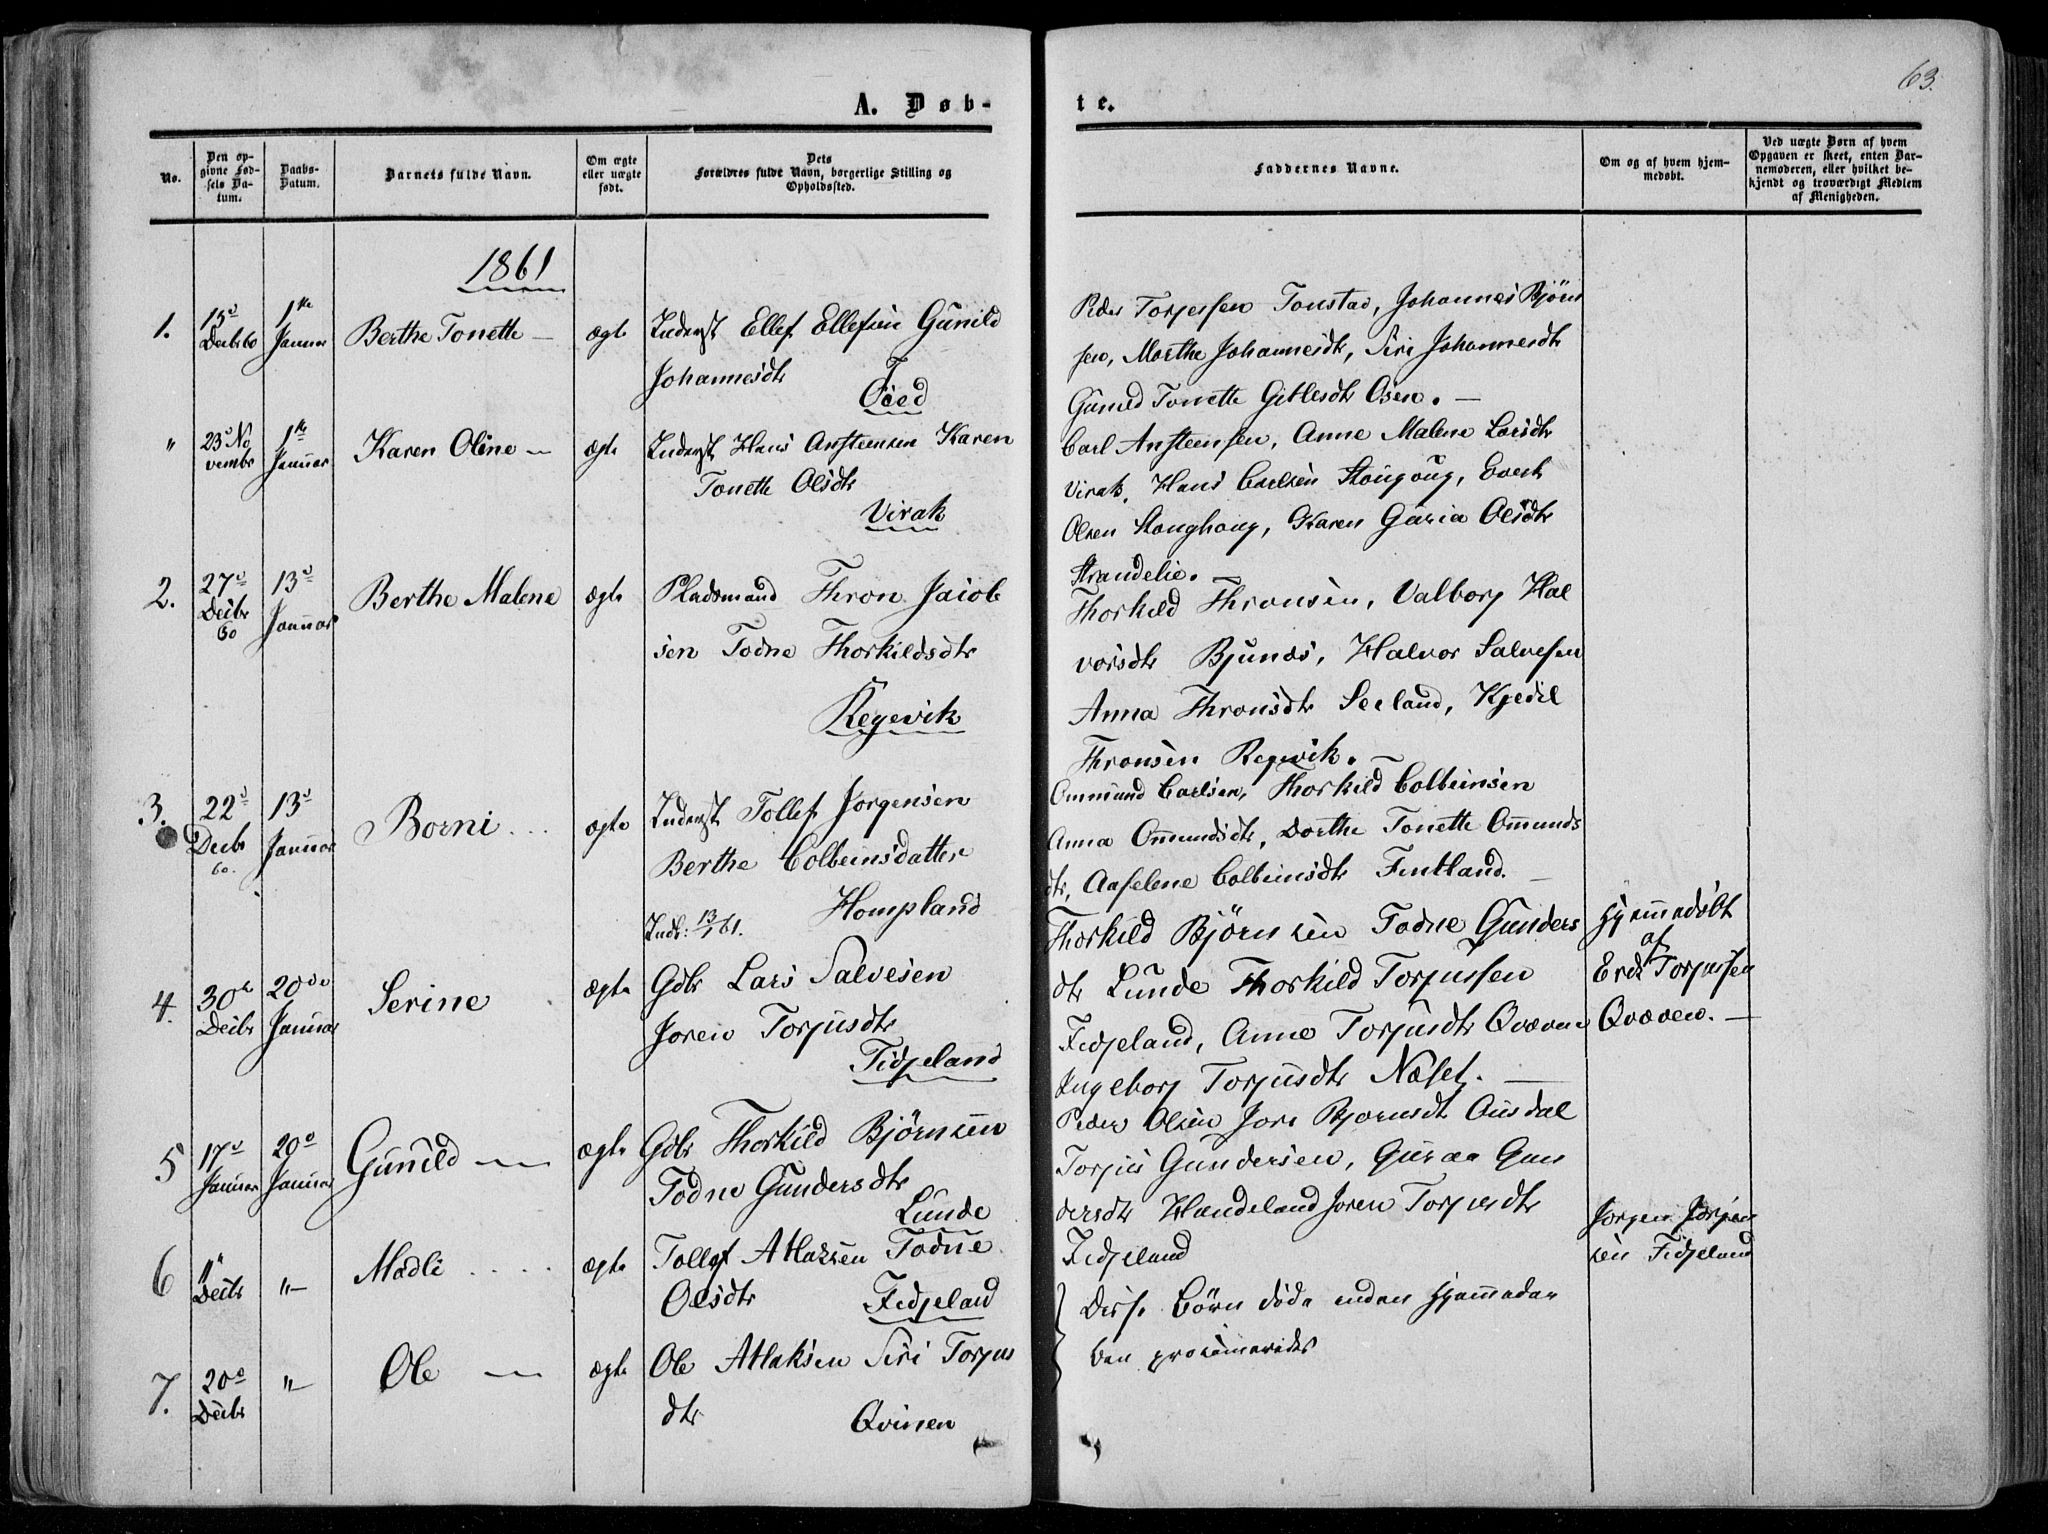 63.
A. Døb-
te.
No.
Den op-
givne Fød-
sels Da-
tum.
Daabs-
Datum.
Barnets fulde Navn.
Om ægte
eller uægte
født.
Dets
Forældres fulde Navn, borgerlige Stilling og
Opholdssted.
Faddernes Navne.
Om og af hvem hjem-
medøbt.
Ved uægte Børn af hvem
Opgaven er skeet, enten Bar-
nemoderen, eller hvilket be-
kjendt og troværdigt Medlem
af Menigheden.
1861
1.
15d
Decbr 60
1te
Januar
Berthe Tonette —
ægte
Inderst Ellef Ellefsen Gunild
Johannesdtr
Peder Torjessen Tonstad, Johannes Bjørn
sen, Marthe Johannesdtr, Siri Johannesdtr
Gunild Tonette Gitlesdtr Osen. —
"
23d No
vembr
1te
Januar
Karen Oline —
ægte
Inderst Hans Anstensen Karen
Tonette Olsdtr
Virak
Carl Anstensen, Anne Malene Larsdtr
Virak, Hans Carlsen, Evert
Olsen, Karen Guria Olsdtr
Strandelie.
2.
27d
Decbr
60
13d
Januar
Berthe Malene
ægte
Pladsmand Thron Jacob
sen Todne Thorkildsdtr
Regevik
Thorkild Thronsen, Valborg Hal
vorsdtr Bjunes, Halvor Salvesen
Anna Thronsdtr Seeland, Kjedil
Thronsen Regevik.
3.
22d
Decbr
60.
13d
Januar
Borni ...
ægte
Inderst Tollef Jorgensen
Berthe Colbeinsdatter
Hompland
Indr: 13/1 61.
Ommund Carlsen, Thorkild Colbeinsen
Anna Ommundsdtr, Dorthe Tonette Ommunds
dtr, Aaselene Colbeinsdtr Fintland. —
4.
30te
Decbr
20de
Januar
Serine
ægte
Gdbr Lars Salvesen
Joren Torjusdtr
Fidjeland
Thorkild Bjørnsen Todne Gunders
dtr Lunde Thorkild Torjussen
Fidjeland, Anne Torjusdtr Qvæven
Ingeborg Torjusdtr Næset. —
Hjemmedøbt
af
Torjussen
Qvæven. —
5
17d
Januar
20d
Januar
Gunild —
ægte
Gdbr Thorkild Bjørnsen
Todne Gundersdtr
Lunde
Peder Olsen Jore Bjornsdtr Ousdal
Torjus Gundersen, Guraa Gun
dersdtr Handeland Joren Torjusdtr
Fidjeland
6
"
Decbr
"
Madli ....
ægte
Tollef Atlaksen Todne
Olsdtr
Fidjeland
Jorgen Jorgen
sen Fidjeland
7.
20d
Decbr
"
Ole —
ægte
Ole Atlaksen Siri Torjus
dtr
Qvinen
Disse Børn døde inden Hjemmedaa
ben